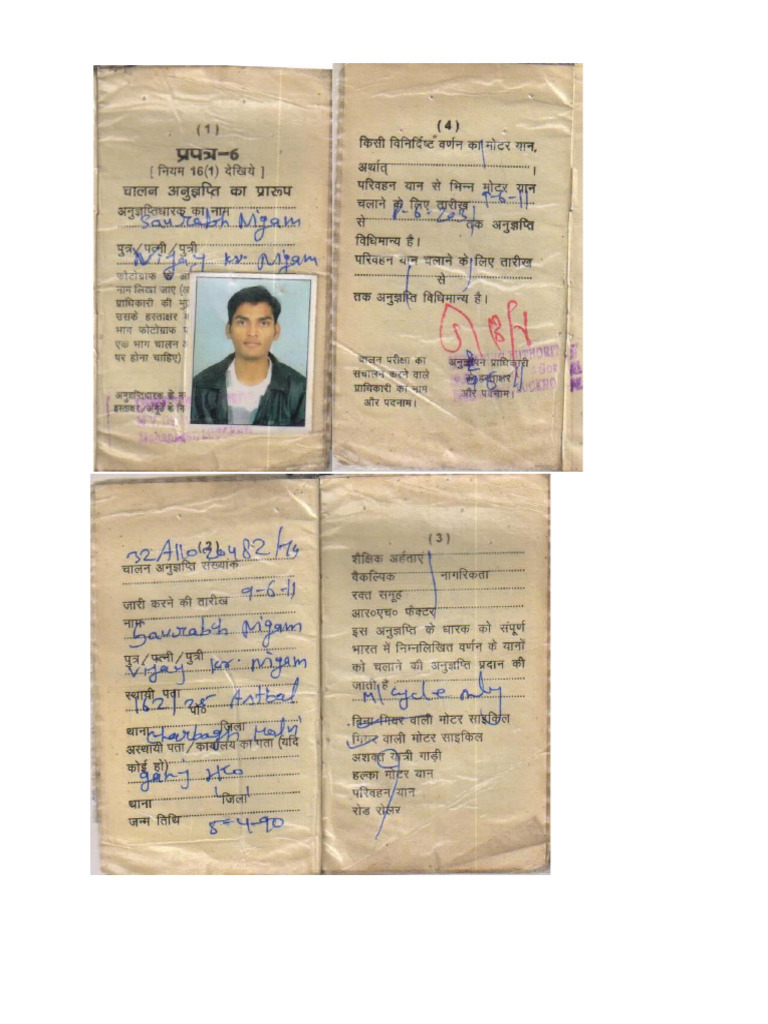 (1)
प्रपत्र-6
[ नियम 16(1) देखिये ]
चालन अनुज्ञप्ति का प्रारूप
अनुज्ञप्तिधारक का नाम
Saurabh Nigam
पुत्र/पत्नी/पुत्री
Vijay Kr. Nigam
फोटोग्राफ के
नाम लिखा जाए
प्राधिकारी की
उसके हस्ताक्षर
भाग फोटोग्राफ
एक भाग चालन
पर होना चाहिए)
अनुज्ञप्तिधारी के
हस्ताक्षर/अंगूठे के
(4)
किसी विनिर्दिष्ट वर्णन का मोटर यान,
अर्थात्
परिवहन यान से भिन्न मोटर यान
चलाने के लिए तारीख 9-6-11
से तक अनुज्ञप्ति
विधिमान्य है।
परिवहन यान चलाने के लिए तारीख
से
तक अनुज्ञप्ति विधिमान्य है।
चालन परीक्षा का
संचालन करने वाले
प्राधिकारी का नाम
और पदनाम।
अनुज्ञापन प्राधिकारी
के हस्ताक्षर
और पदनाम।
(2)
चालन अनुज्ञप्ति संख्यांक
जारी करने की तारीख 9-6-11
नाम
Saurabh Nigam
पुत्र/पत्नी/पुत्री
Vijay Kr. Nigam
स्थायी पता
162/25 Astbal
थाना जिला
Charbagh
अस्थायी पता/कार्यालय का पता (यदि
कोई हो)
ganj LKO
थाना जिला
जन्म तिथि 5-4-90
(3)
शैक्षिक अर्हताएं
वैकल्पिक नागरिकता
रक्त समूह
आर०एच० फॅक्टर
इस अनुज्ञप्ति के धारक को संपूर्ण
भारत में निम्नलिखित वर्णन के यानों
को चलाने की अनुज्ञप्ति प्रदान की
जाती है
M/Cycle only
बिना गियर वाली मोटर साइकिल
गियर वाली मोटर साइकिल
अशक्त यात्री गाड़ी
हल्का मोटर यान
परिवहन यान
रोड रोलर